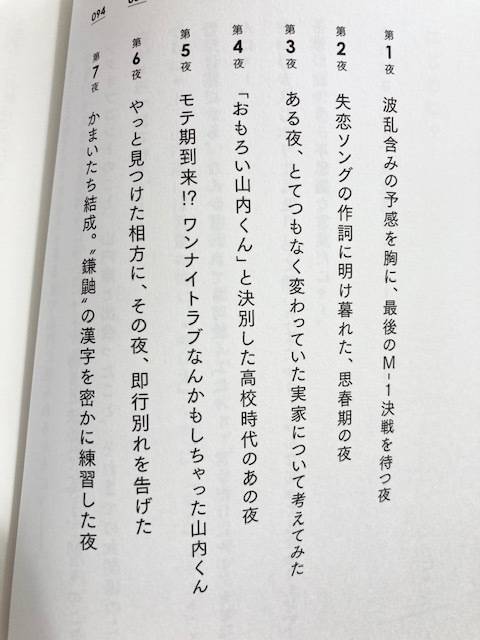 第1夜 波乱含みの予感を胸に、最後のM-1決戦を待つ夜
第2夜 失恋ソングの作詞に明け暮れた、思春期の夜
第3夜 ある夜、とてつもなく変わっていた実家について考えてみた
第4夜 「おもろい山内くん」と決別した高校時代のあの夜
第5夜 モテ期到来!? ワンナイトラブなんかもしちゃった山内くん
第6夜 やっと見つけた相方に、その夜、即行別れを告げた
第7夜 かまいたち結成。“鎌鼬”の漢字を密かに練習した夜
094